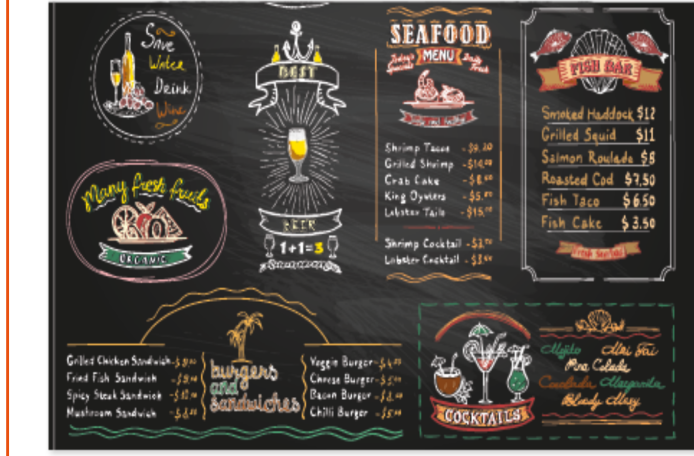 Save
Water
Drink
Wine
Many fresh fruits
ORGANIC
BEST
BEER
1+1=3
SEAFOOD
MENU
Shrimp Tacos
Grilled Shrimp
Crab Cake
King Oysters
Lobster Tails
Shrimp Cocktail
Lobster Cocktail
FISH BAR
Smoked Haddock $12
Grilled Squid $11
Salmon Roulade $8
Roasted Cod $7,50
Fish Taco $6.50
Fish Cake $3.50
Fresh Seafood
Grilled Chicken Sandwich
Fried Fish Sandwich
Spicy Steak Sandwich
Mushroom Sandwich
burgers
and
sandwiches
Veggie Burger
Cheese Burger
Bacon Burger
Chilli Burger
COCKTAILS
Mojito Mai Tai
Pina Colada
Margarita
Bloody Mary